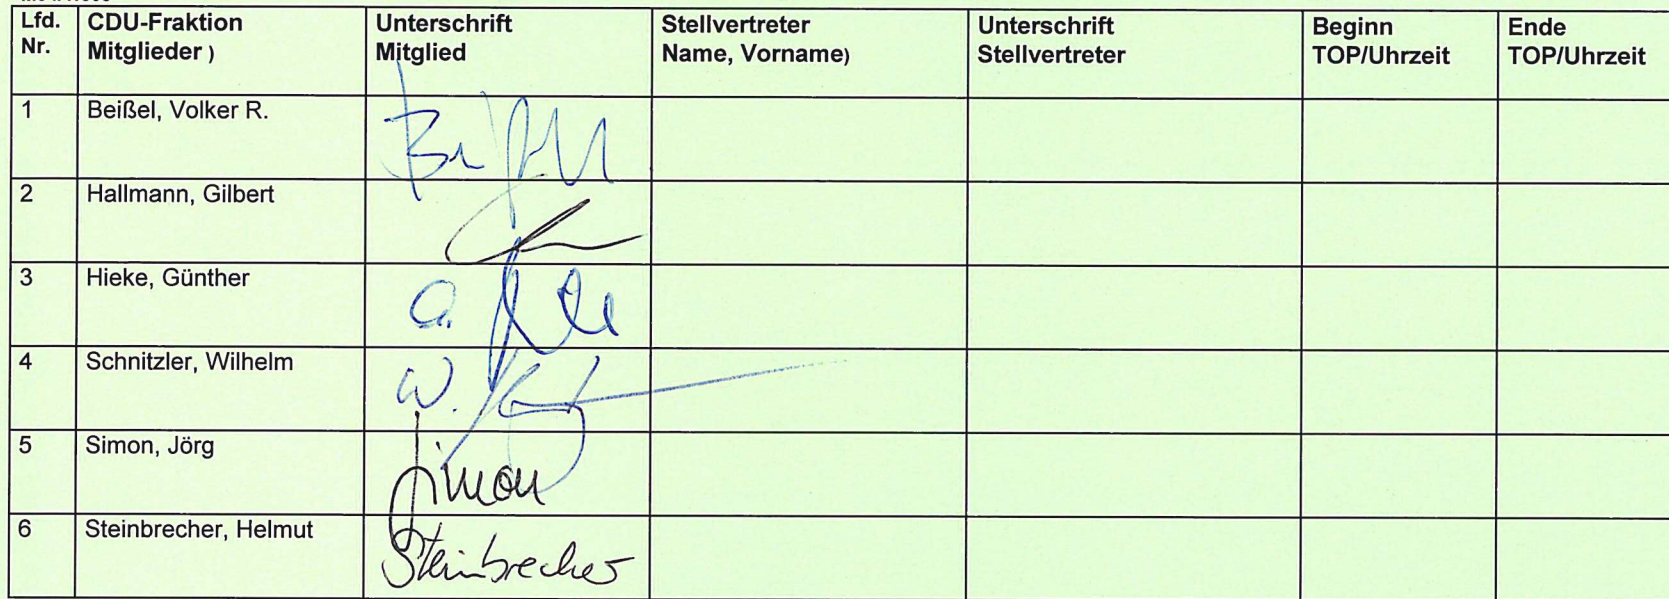 Lfd. Nr. CDU-Fraktion Mitglieder ) Unterschrift Mitglied Stellvertreter Name, Vorname) Unterschrift Stellvertreter Beginn TOP/Uhrzeit Ende TOP/Uhrzeit
1 Beißel, Volker R.
2 Hallmann, Gilbert
3 Hieke, Günther G.
4 Schnitzler, Wilhelm W.
5 Simon, Jörg Simon
6 Steinbrecher, Helmut Steinbrecher